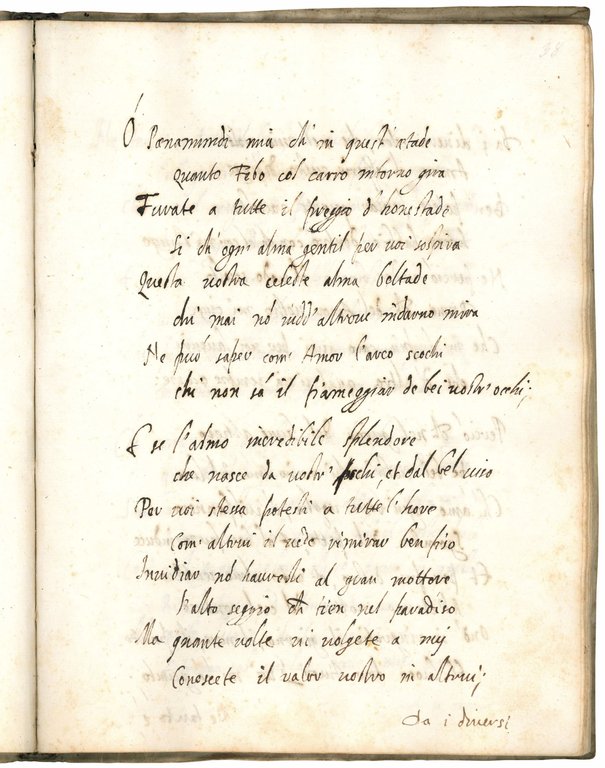 38
Ó Pænamundi mia ch' in quest' etade
quanto Febo col carro intorno gira
Furate a tutte il freggio d' honestade
Si ch' ogn' alma gentil per voi sospira
Questa vostra celeste alma beltade
chi mai nõ vidd' altrove indarno mira
Ne può saper com' Amor l' arco scochi
chi non sà il fiameggiar de bei vostr' occhi;
E se l' almo incredibile splendore
che nasce da vostr' ochi, et dal bel viso
Per voi stessa potesti a tutte l' hore
Com' altrui il vede rimirar ben fiso
Invidiar nõ havresti al gran mottore
L' alto seggio ch' tien nel paradiso
Ma quante volte vi volgete a nuj
Conoscete il valor vostro in altrui;
da i diversi